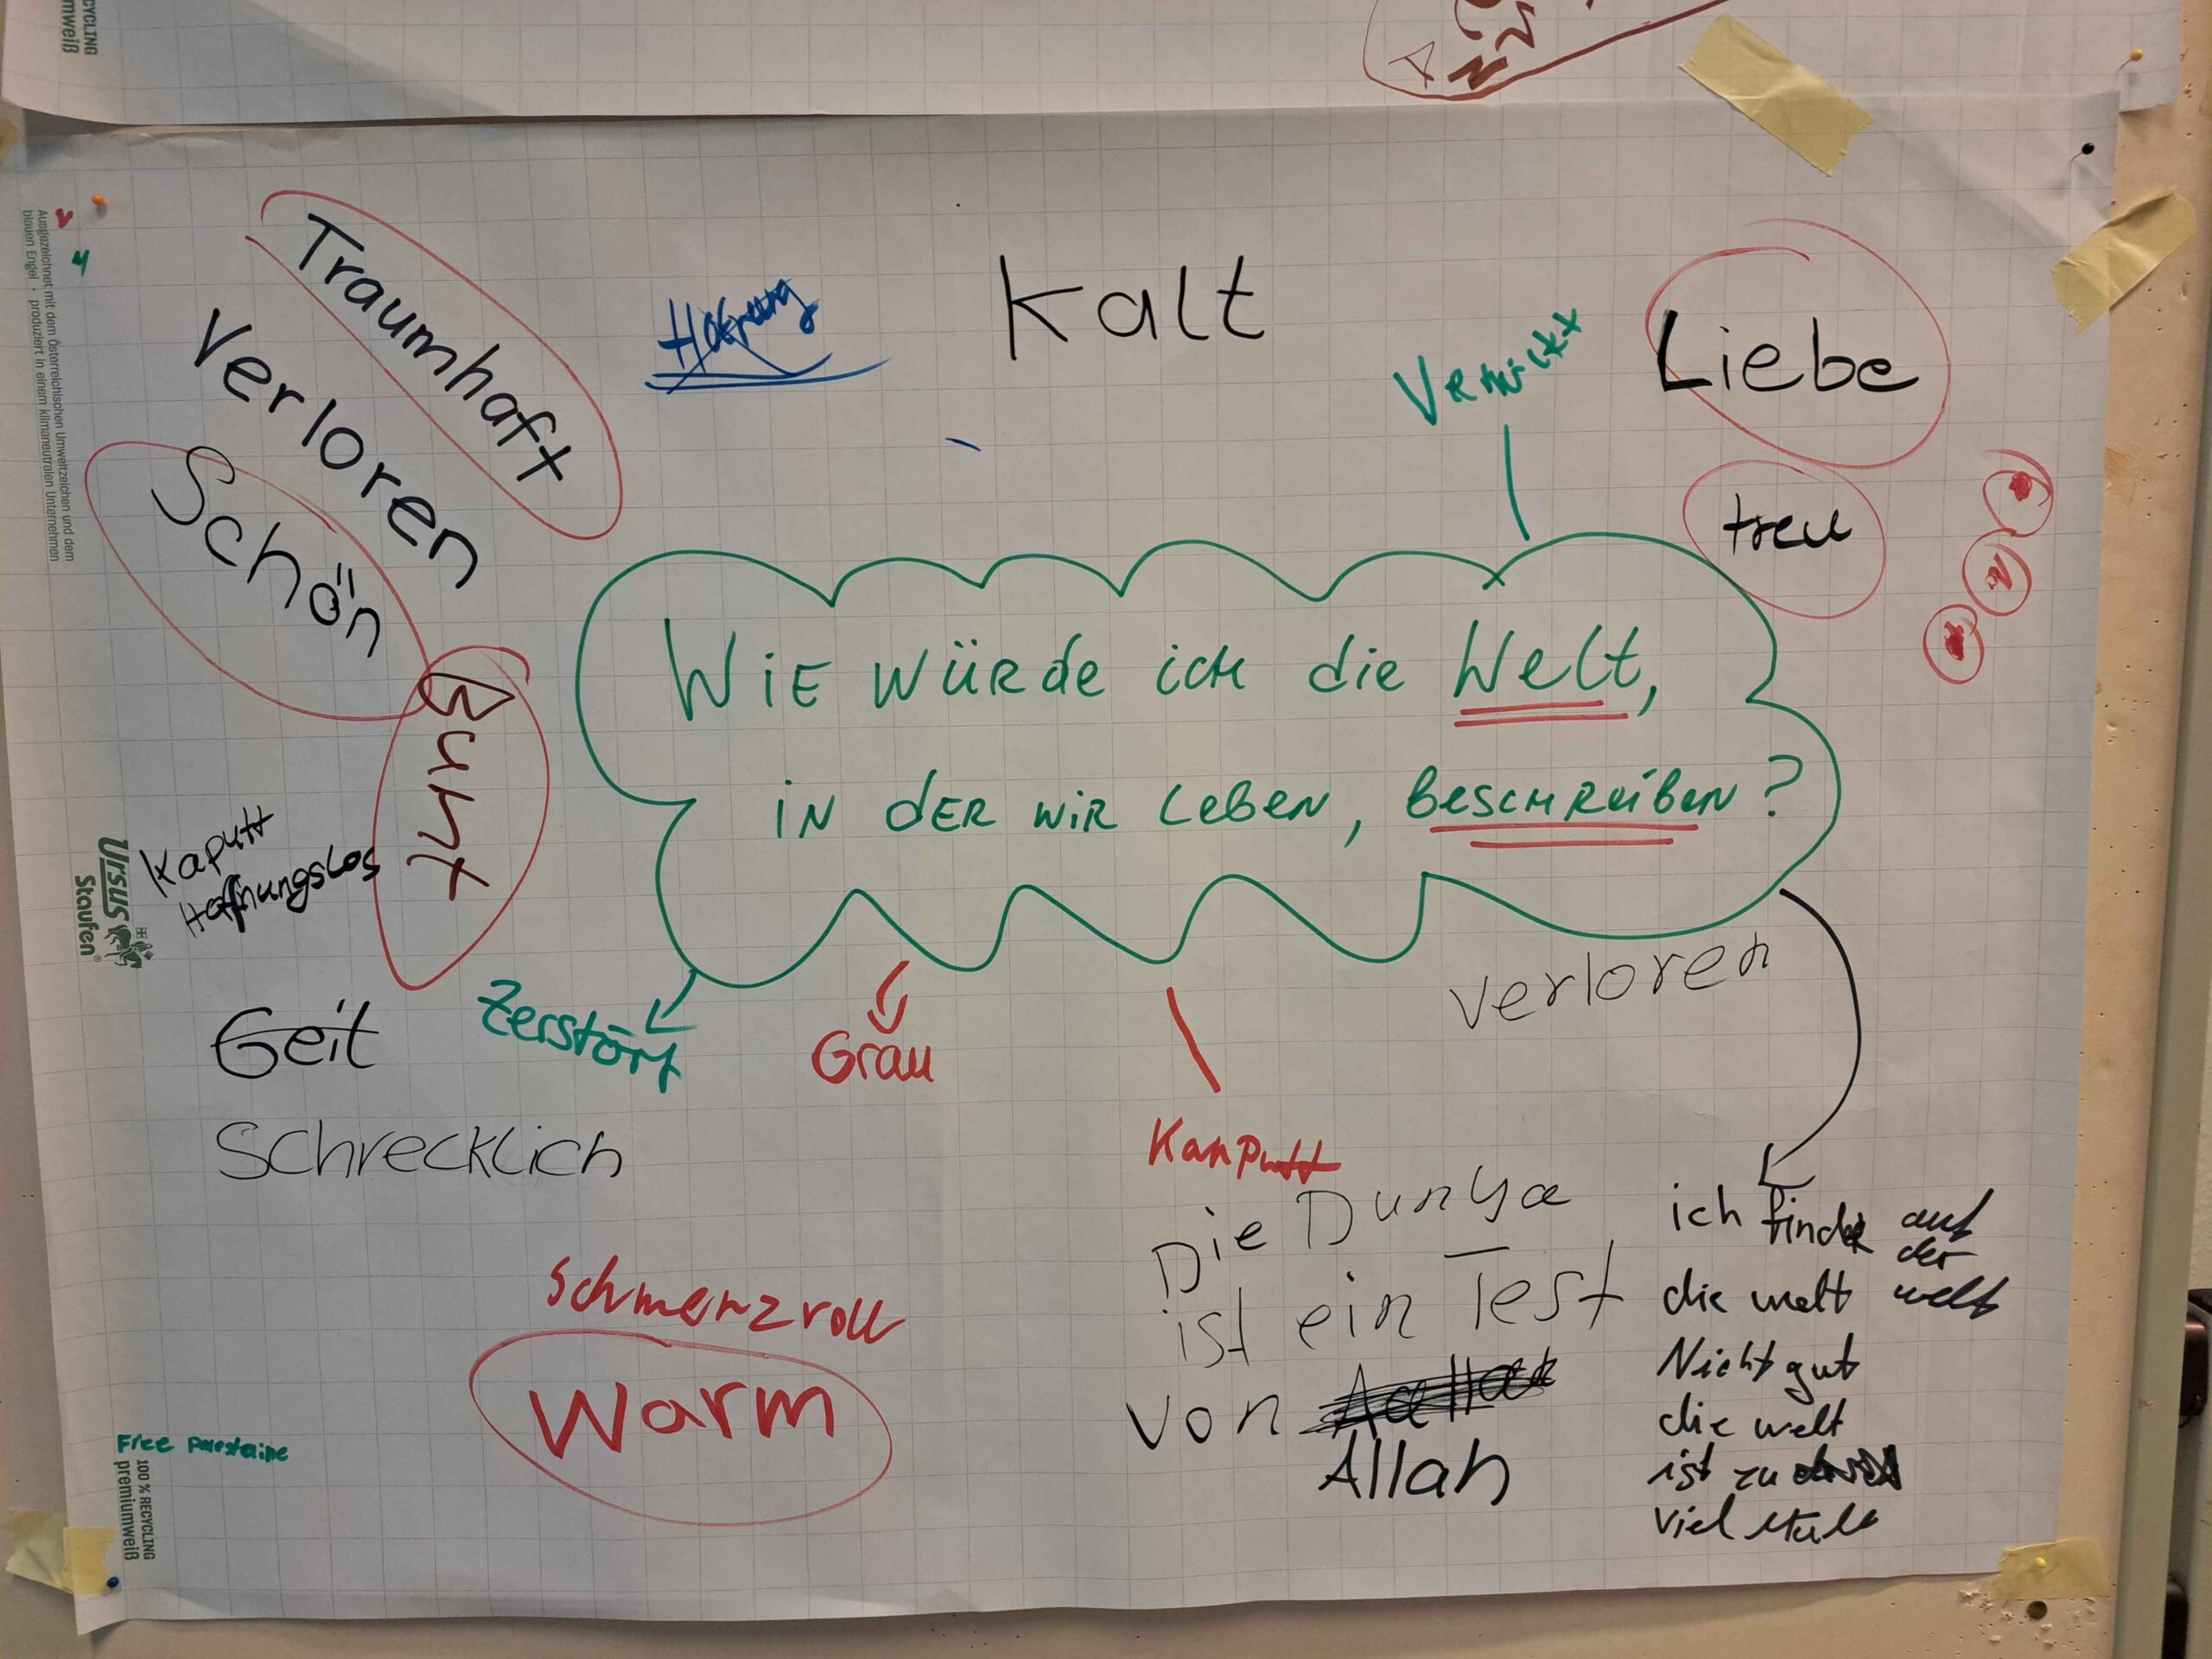 RECYCLING
Ausgezeichnet mit dem Österreichischen Umweltzeichen und dem
blauen Engel · produziert in einem klimaneutralen Unternehmen
Traumhaft
Verloren
Schön
Bunt
Hoffnung
Kalt
Verrückt
Liebe
treu
WiE WÜRde ich die Welt,
iN dER wiR Leben, Beschreiben?
Kaputt
Hoffnungslos
Ursus
Staufen®
Geil
Schrecklich
Zerstört
Grau
Kanputt
verloren
Schmerzvoll
Warm
Die Dunya
ist ein Test
von
Allah
ich finde auf
der
die welt welt
Nicht gut
die welt
ist zu
viel
Free
100 % RECYCLING
premiumweiß